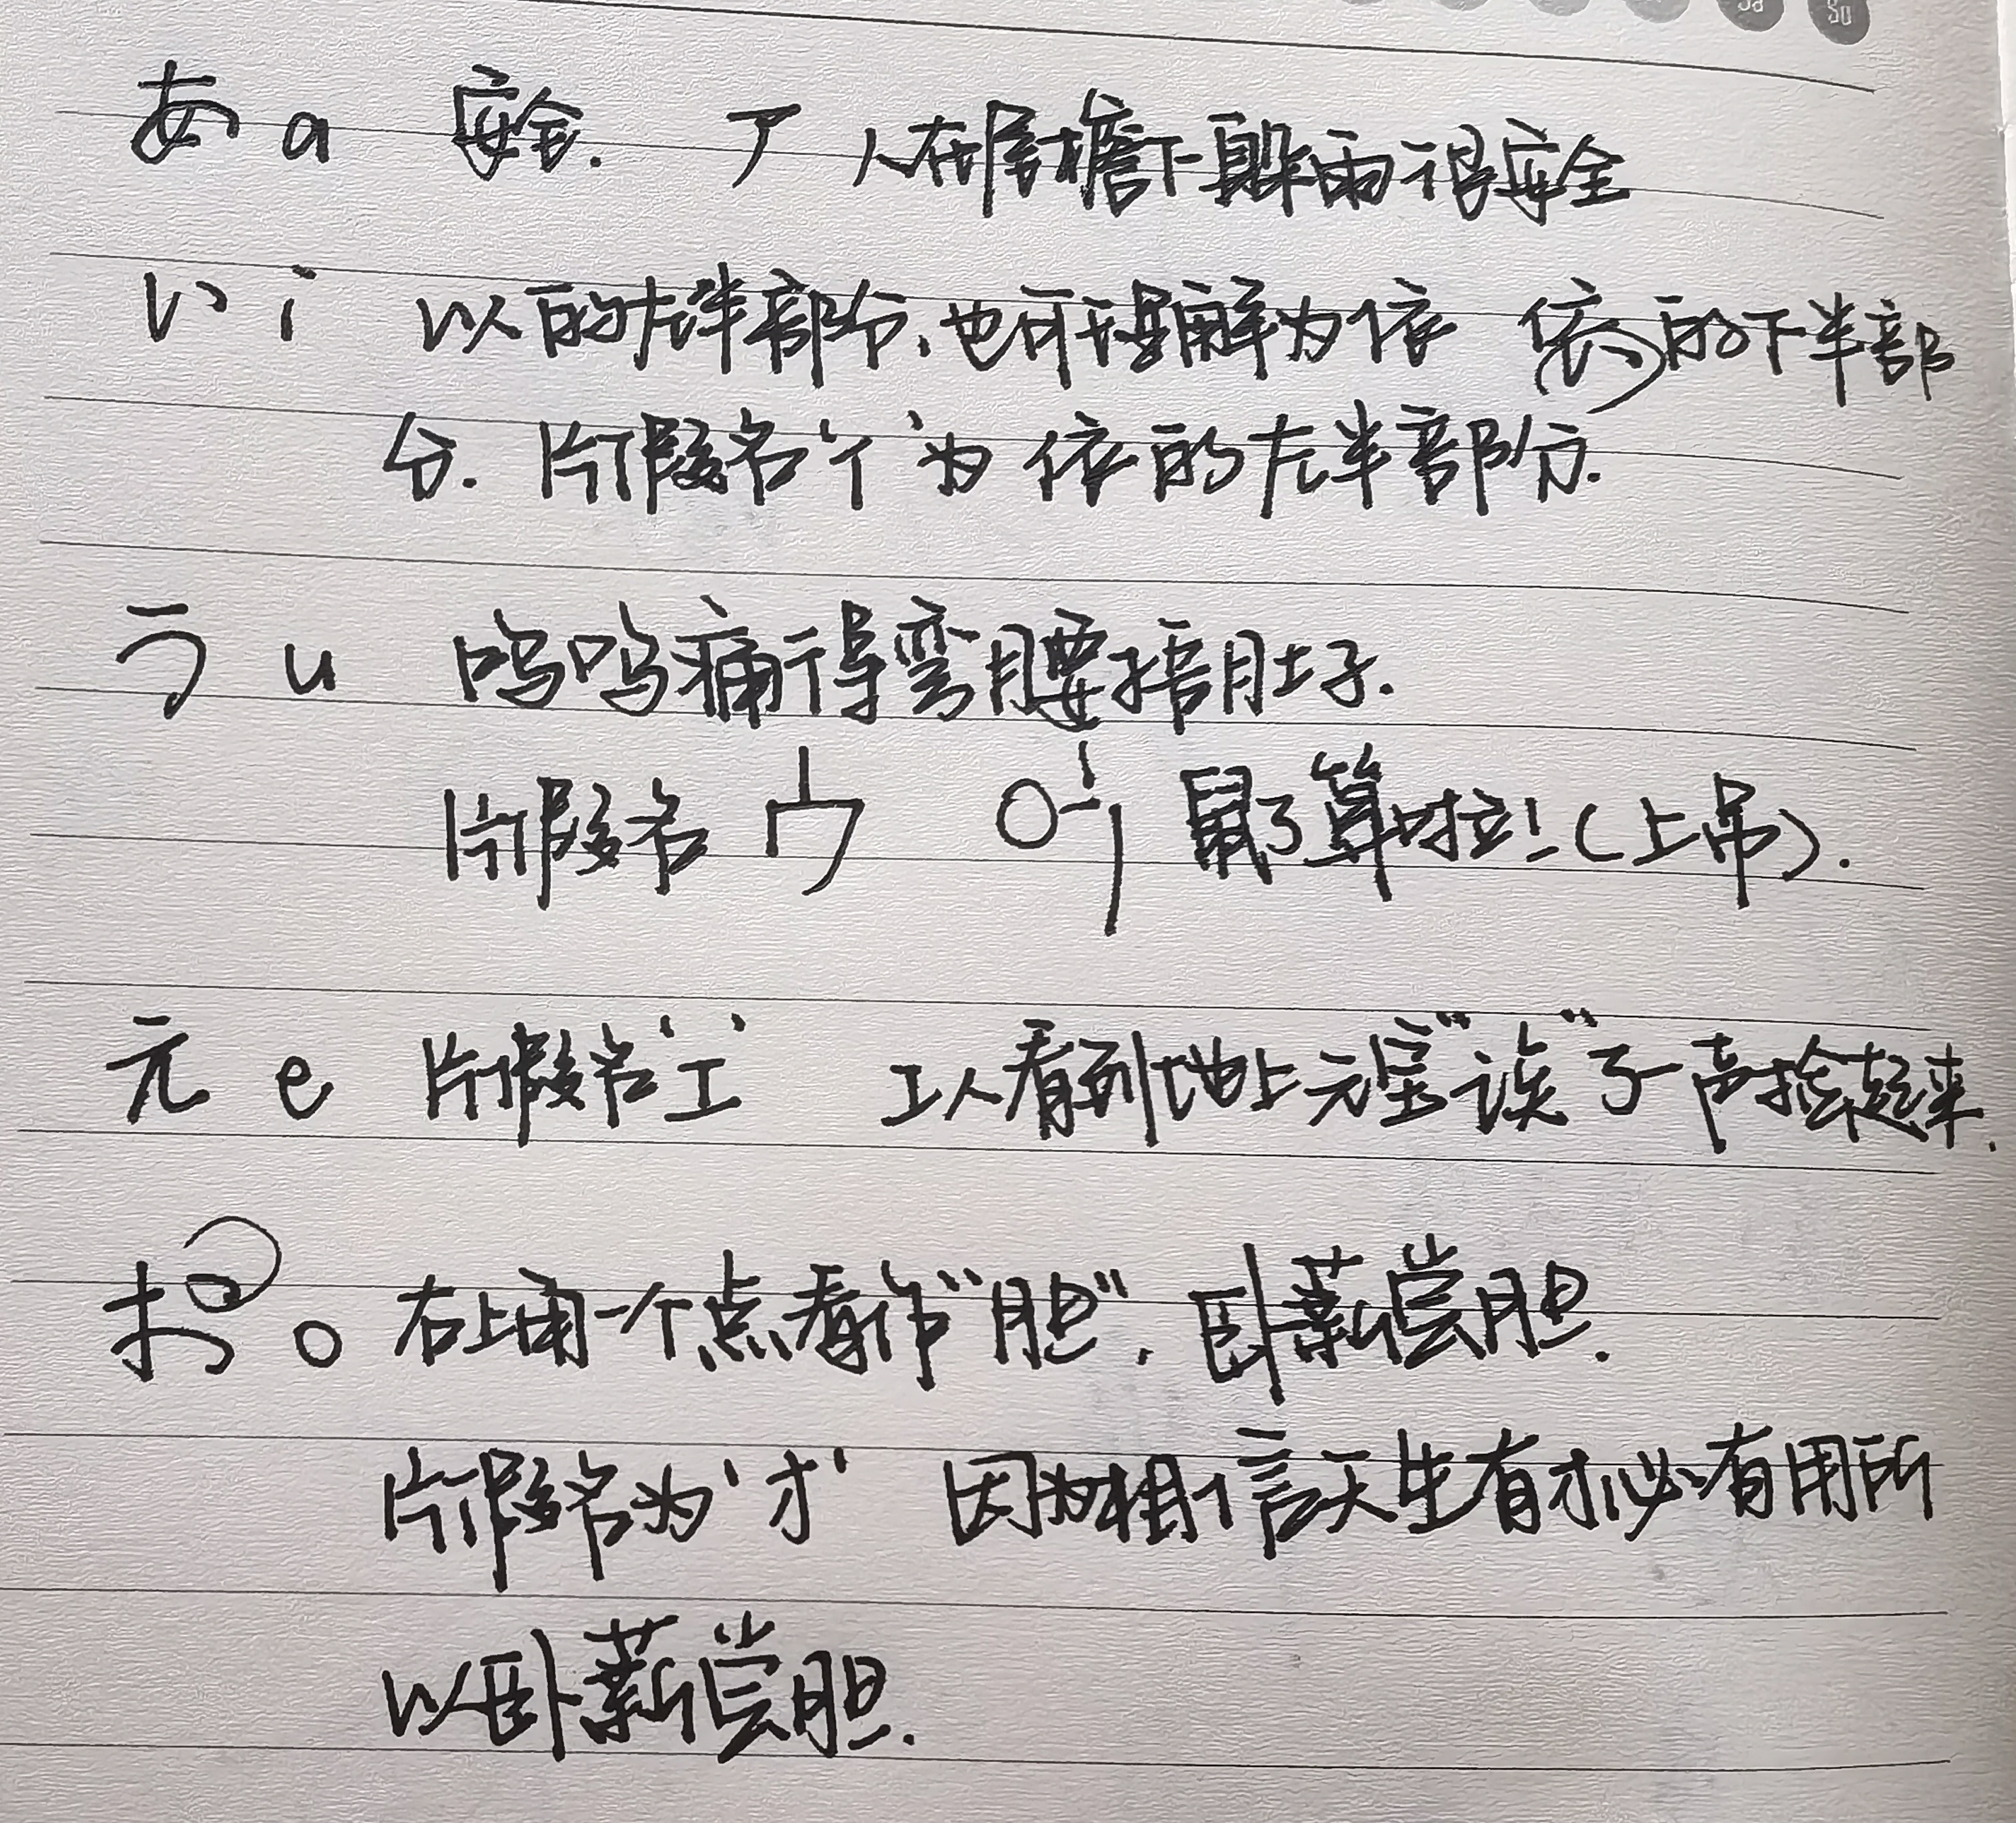 So
あ a 安全. ア 人在屋檐下躲雨很安全
い i 以的左半部分,也可理解为依 依的下半部
分. 片假名'イ'为依的左半部分.
う u 呜呜痛得弯腰捂肚子.
片假名 ウ 屎了算啦!(上吊).
え e 片假名'エ' 工人看到地上元宝"诶"了一声捡起来.
お o 右上角一个点看作"胆", 卧薪尝胆.
片假名为'オ' 因为相信天生有才必有用所
以卧薪尝胆.